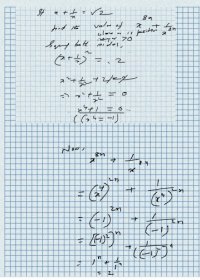 If x + 1/x = √2
find the value of x^8n + 1/x^8n
where n is positive
n > 0
Squaring both sides,
(x + 1/x)² = 2
x² + 1/x² + 2 = 2
⇒ x² + 1/x² = 0
x⁴ + 1 = 0
(x⁴ = -1)
Now,
x^8n + 1/x^8n
= (x⁴)^2n + 1/(x⁴)^2n
= (-1)^2n + 1/(-1)^2n
= [(-1)²]^n + (1/(-1)²)^n
= 1^n + 1/1^n
= 2